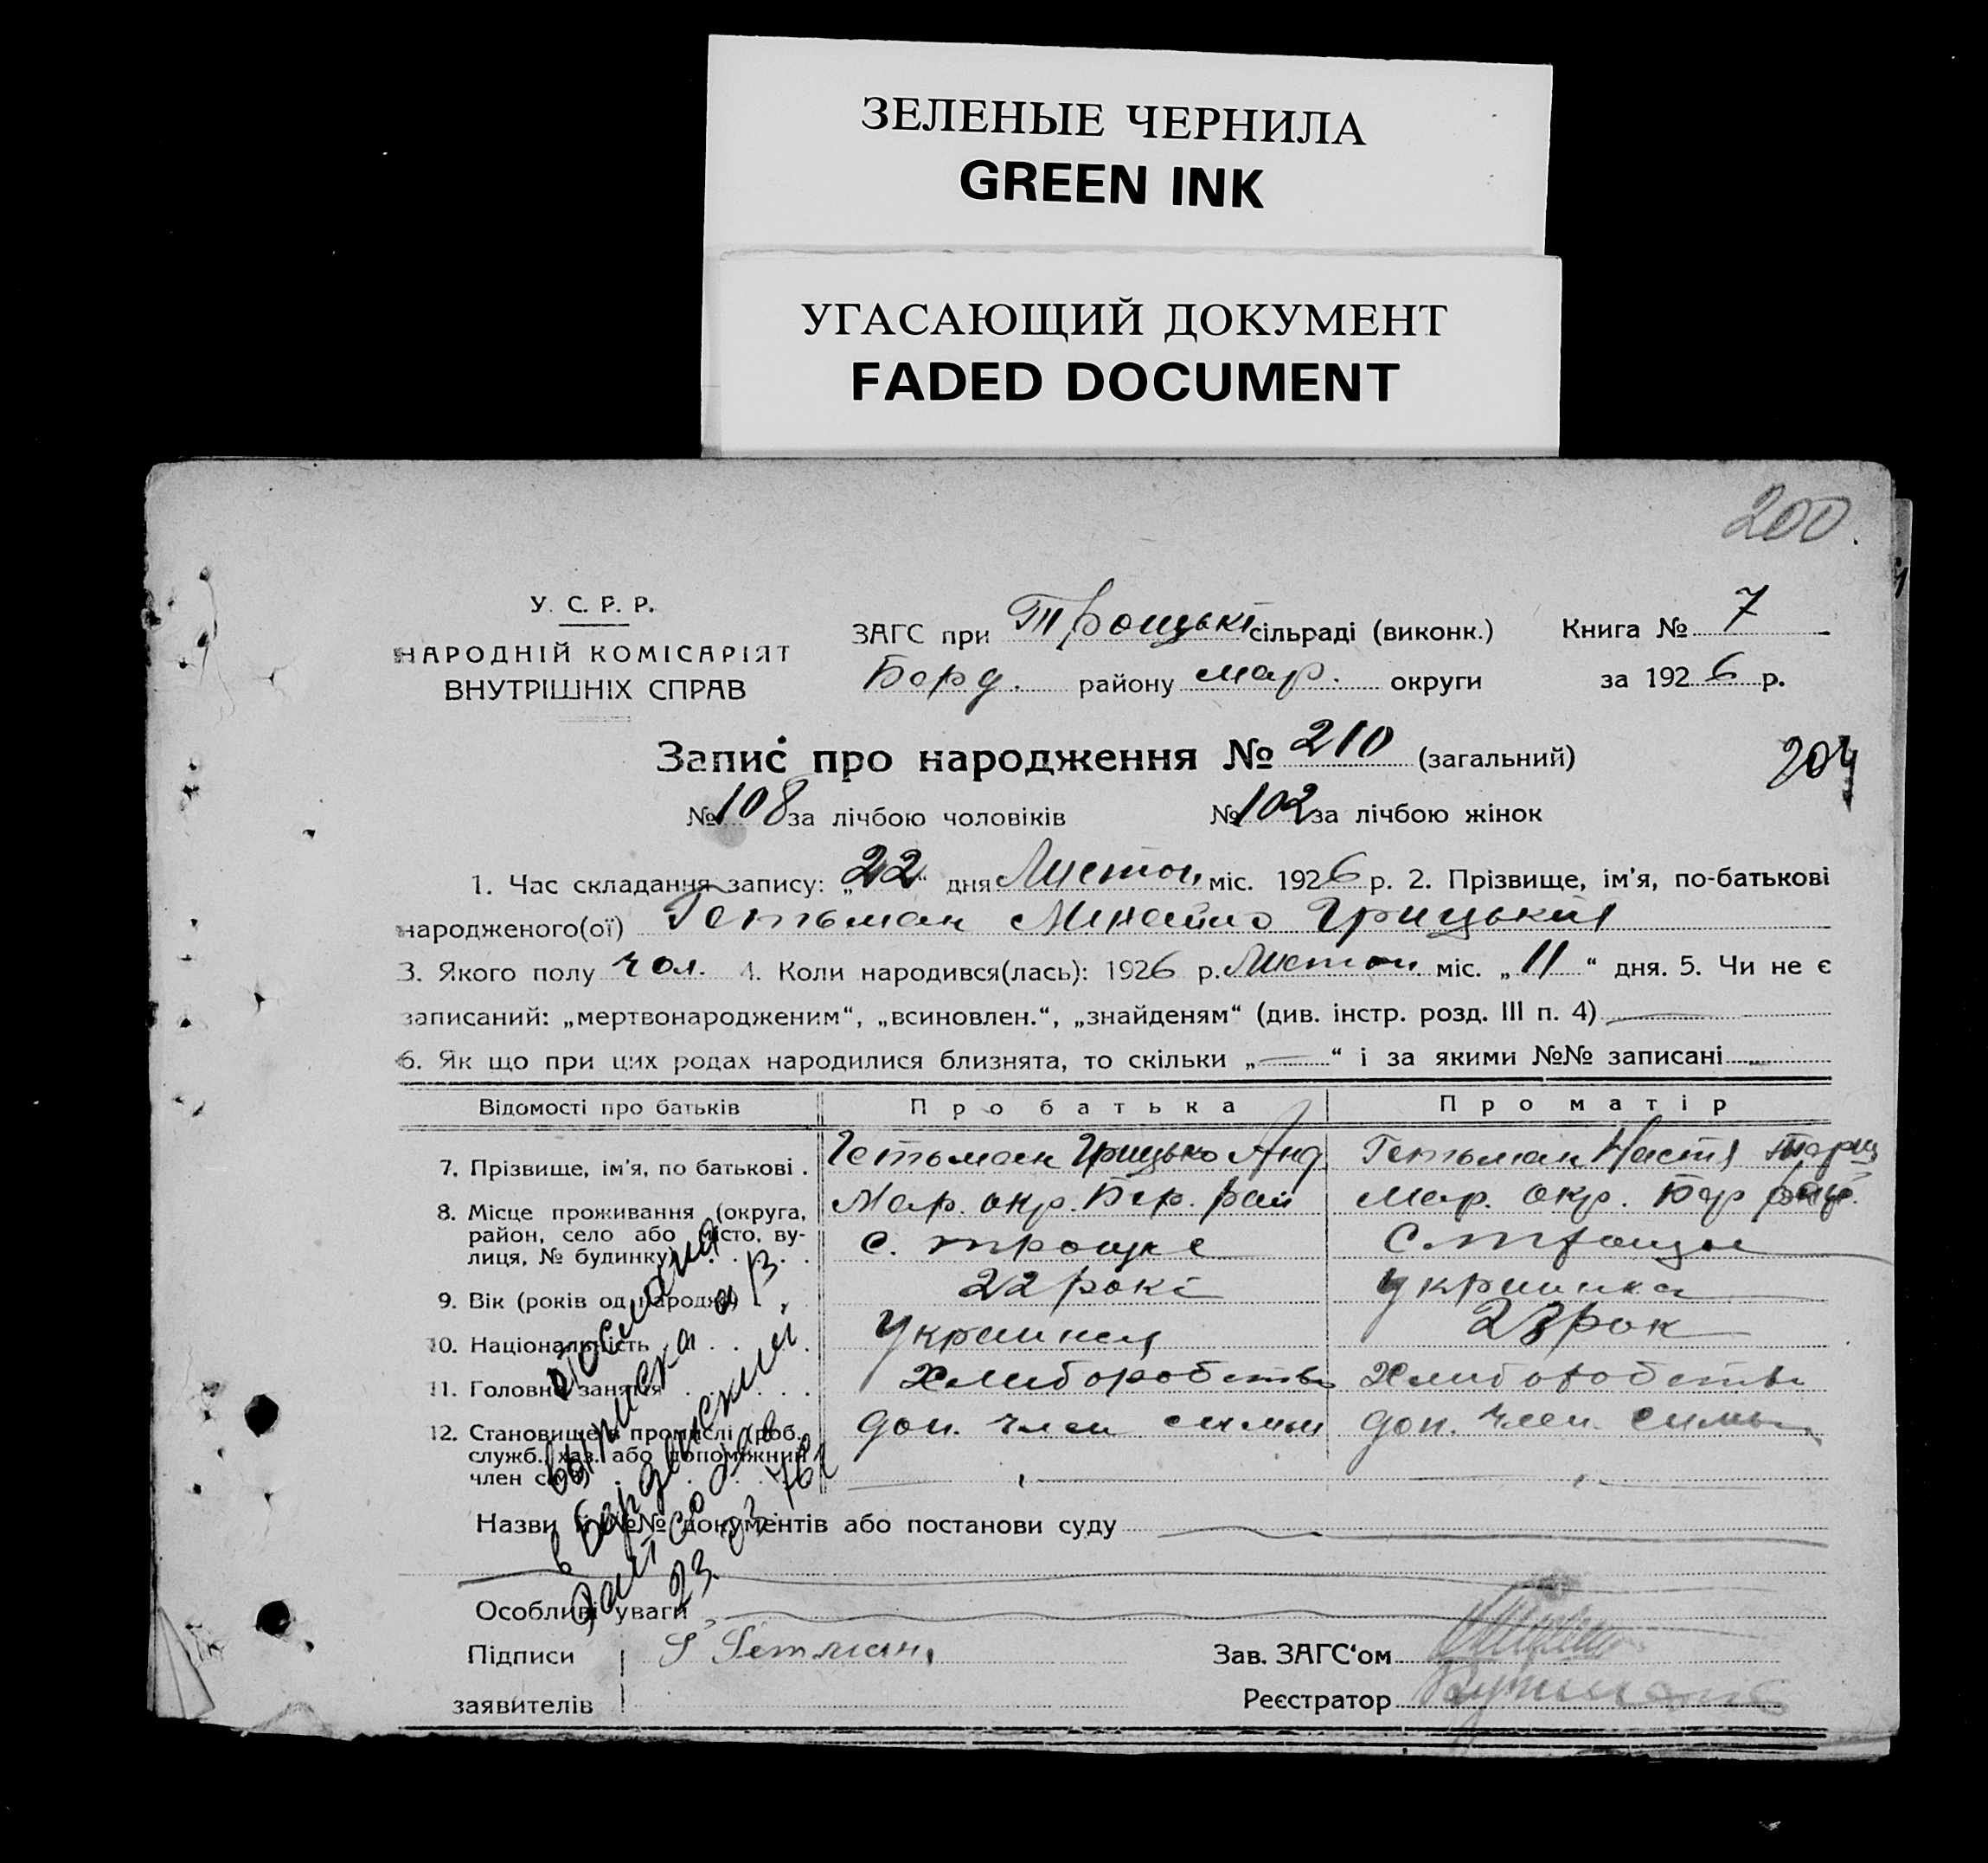 ЗЕЛЕНЫЕ ЧЕРНИЛА
GREEN INK
УГАСАЮЩИЙ ДОКУМЕНТ
FADED DOCUMENT
200.
У. С. Р. Р.
НАРОДНІЙ КОМІСАРІЯТ
ВНУТРІШНІХ СПРАВ
ЗАГС при Троцькі сільраді (виконк.) Книга № 7
Борд. району Мар. округи за 1926 р.
Запис про народження № 210 (загальний)
204
№ 108 за лічбою чоловіків № 102 за лічбою жінок
1. Час складання запису: „22“ дня Листоп. міс. 1926 р. 2. Прізвище, ім'я, по-батькові
народженого(ої) Гетьман Михайло Грицькия
3. Якого полу чол. 4. Коли народився(лась): 1926 р. Листоп міс. „11“ дня. 5. Чи не є
записаний: „мертвонародженим“, „всиновлен.“, „знайденям“ (див. інстр. розд. III п. 4)
6. Як що при цих родах народилися близнята, то скільки „—“ і за якими №№ записані
Відомості про батьків Про батька Про матір
7. Прізвище, ім'я, по батькові . Гетьман Грицько Анд Гетьман Настя
8. Місце проживання (округа, Мар. окр. Бер. рай Мар. окр. Бер рай.
район, село або місто, ву-
лиця, № будинку) с. Троцке С. Троцьк
9. Вік (років од народж.) 22 рокі Украинка
10. Національність Украинец 23 рок
11. Головне заняття Хлиборобство Хлиборобство
12. Становище в промислі (роб. доп. член симьи доп. член. симьи
служб., хаз. або допоміжний
член сім'ї)
Назви й №№ документів або постанови суду
Особливі уваги
Підписи Г Гетман
заявителів
Зав. ЗАГС'ом
Реєстратор
послана
выписка а в
в Бердянский
ЗАГС
23. 03 76г